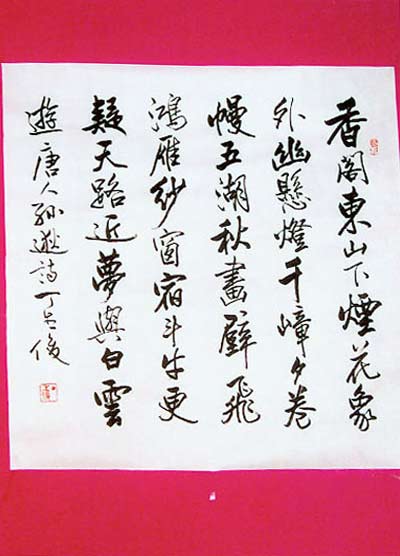 香閣東山下煙花象
外幽懸燈千嶂夕卷
幔五湖秋畫壁飛
鴻雁紗窗宿斗牛更
疑天路近夢與白雲
遊 唐人孫逖詩丁俊